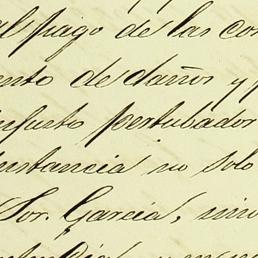 al pago de las cos
ento de daños y p
injusto pertubador
instancia no solo
Sor. Garcia, sino